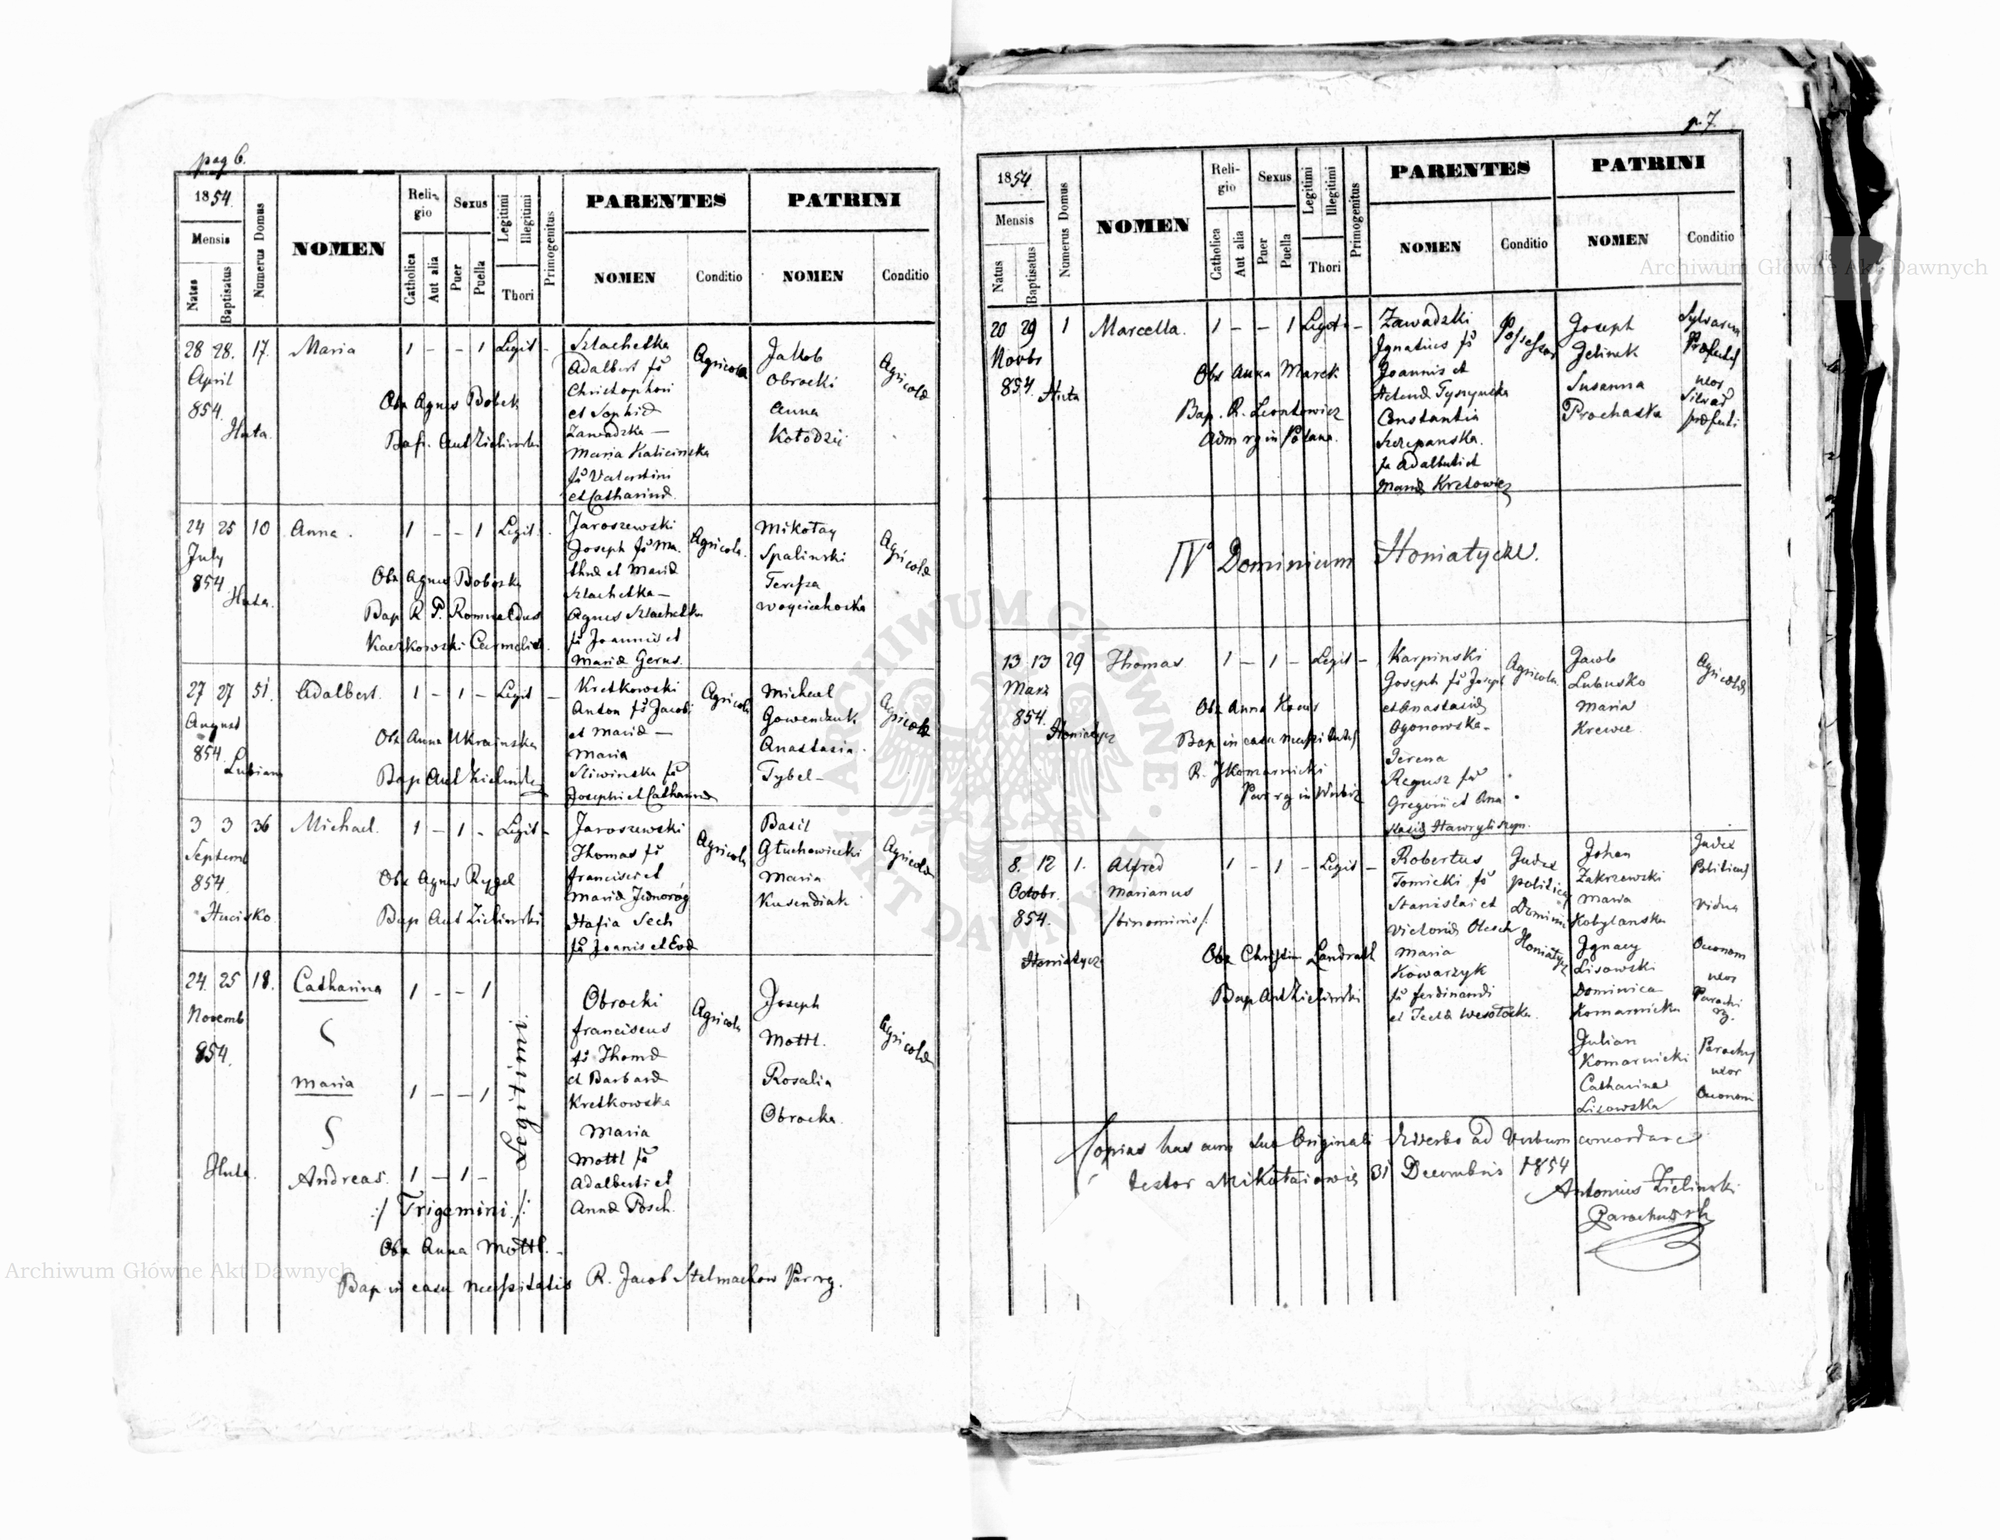 pag 6.
1854.
Mensis
Natus
Baptisatus
Numerus Domus
NOMEN
Religio
Catholica
Aut alia
Sexus
Puer
Puella
Legitimi
Illegitimi
Thori
Primogenitus
PARENTES
NOMEN
Conditio
PATRINI
NOMEN
Conditio
28 28. 17. Maria 1 - - 1 Legit -
April
854.
Huta.
Obx Agnes Bobek
Bap. Ant Zielinski
Szlachetka
Adalbert fs
Christophori
et Sophiæ
Zawadzka —
Maria Kalicinska
fa Valentini
et Catharinæ.
Agricola
Jakob
Obrocki
Anna
Kołodzij
Agricolæ
24 25 10 Anna. 1 - - 1 Legit. -
July
854
Huta.
Obx Agnes Bobeska
Bap R. P. Romualdus
Kaczkowski Carmelit.
Jaroszewski
Joseph fs Ma-
thiæ et Mariæ
Szlachetka —
Agnes Szlachetka
fa Joannis et
Mariæ Gerus.
Agricola.
Mikołay
Spalinski
Teressa
Woyciechoska
Agricolæ
27 27 51. Adalbert. 1 - 1 - Legit -
August
854.
Lubiana
Obx Anna Ukrainska
Bap Ant Zielinski
Kretkowski
Anton fs Jacobi
et Mariæ —
Maria
Sliwinska fa
Josephi et Catharinæ
Agricola
Michael
Gowenduk
Anastasia.
Tybel —
Agricolæ
3 3 36 Michael. 1 - 1 - Legit -
Septemb
854.
Hucisko
Obx Agnes Rygel
Bap Ant Zielinski
Jaroszewski
Thomas fs
Francisci et
Mariæ Jednoróg
Hafia Sech
fa Joanis et Evæ
Agricola
Basil
Głuchowiecki
Maria
Kusendiak
Agricolæ
24. 25 18. Catharina 1 - - 1
Novemb
854.
Maria 1 - - 1
Huta.
Andreas. 1 - 1 -
Legittimi
:/ Trigemini /:
Obx Anna Mottl. -
Bap in casu necessitatis R. Jacob Stelmachow Par rg.
Obrocki
Franciscus
fs Thomæ
et Barbaræ
Kretkowska
Maria
Mottl fa
Adalberti et
Annæ Posch.
Agricola
Joseph
Mottl.
Rosalia
Obrocka.
Agricolæ
p. 7.
1854.
Mensis
Natus
Baptisatus
Numerus Domus
NOMEN
Religio
Catholica
Aut alia
Sexus
Puer
Puella
Legitimi
Illegitimi
Thori
Primogenitus
PARENTES
NOMEN
Conditio
PATRINI
NOMEN
Conditio
20 29 1 Marcella. 1 - - 1 Legit. -
Novbr
854.
Huta
Obx Anna Marek
Bap. R. Leontowicz
Adm rg in
Zawadzki
Ignatius fs
Joannis et
Helenæ Tyszynska
Constantia
Szczepanska.
fa Adalberti et
Mariæ Kretowicz
Possessor
Joseph
Jelinek
Susanna
Prochaska
Sylvarum
Præfectus
uxor
Silvar
præfecti
IVº Dominium Honiatycze.
13 13 29 Thomas 1 - 1 - Legit -
Marz
854.
Honiatycz
Obx Anna Kocus
Bap in casu necssitatis
R. J Komarnicki
Par rg in Werbiz
Karpinski
Joseph fs Joseph
et Anastasiæ
Ogonowska -
Terena
Regusz fa
Gregorii et Ana-
stasiæ Hawryliszyn.
Agricola
Jacob
Lubusko
Maria
Krewic
Agricolæ
8. 12 1. Alfred 1 - 1 - Legit -
Octobr. Marianus
854. /binominis/.
Honiatycz
Obx Christin Landratt
Bap Ant Zielinski
Robertus
Tomicki fs
Stanislai et
Victoriæ Olesch
Maria
Kowarzyk
fa Ferdinandi
et Teclæ Wesołocka.
Judex
politicus
Dominii
Honiatycz
Johan
Zakrzewski
Maria
Kobylanska
Ignacy
Lisowski
Dominica
Komarnicka
Julian
Komarnicki
Catharina
Lisowska
Judex
Politicus
vidua
Oeconom
uxor
Parochi
rg.
Parochus
uxor
Oeconomi
Copias has cum suo Originali de verbo ad verbum concordare
testor Mikołaiowie 31 Decembris 1854
Antonius Zielinski
Parochus
ARCHIWUM GŁÓWNE AKT DAWNYCH
Archiwum Główne Akt Dawnych
Archiwum Główne Akt Dawnych